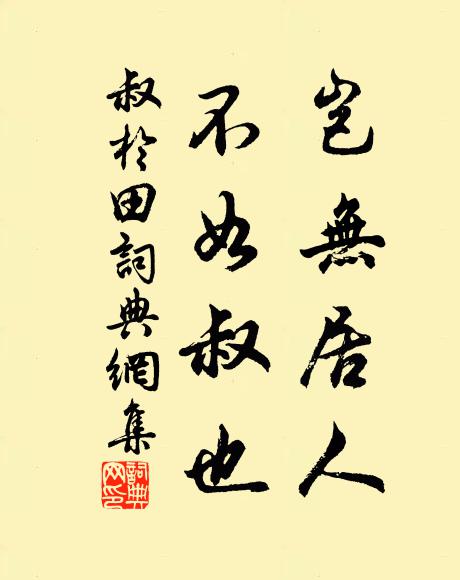 豈無居人
不如叔也
叔於田詞典網集
詞典網印